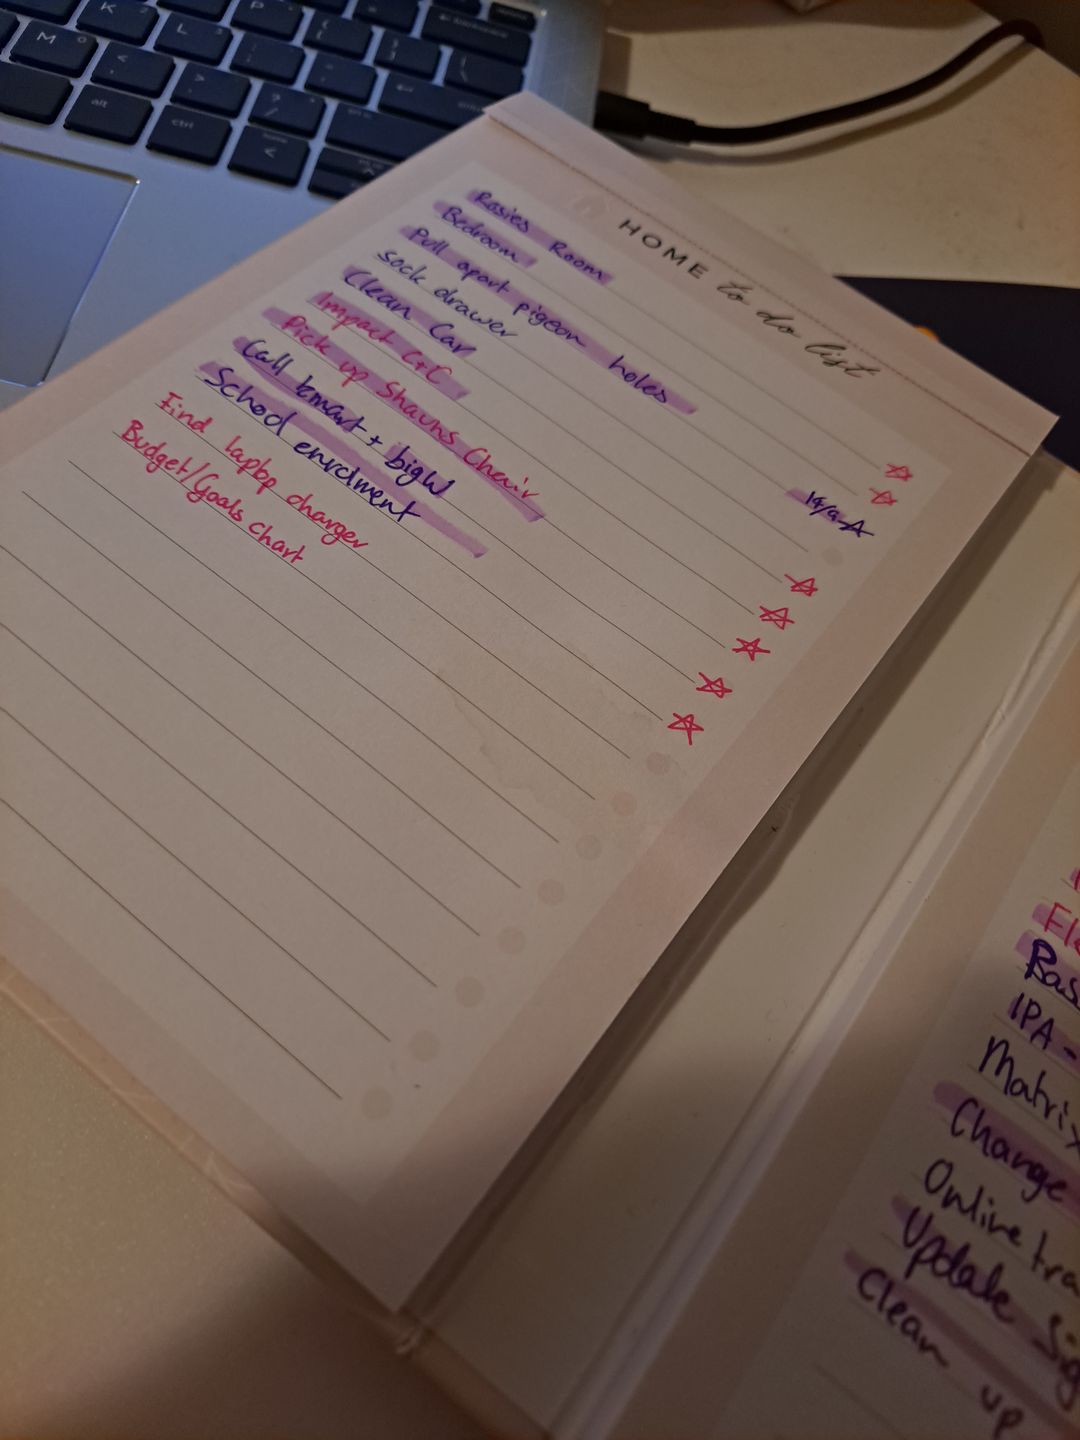 K
P
M
L
<
>
?
alt
ctrl
home
<
HOME to do list
Rosies Room
Bedroom
Pull apart pigeon holes
sock drawer
Clean Car
Impact C+C
Pick up Shauns Chair
Call kmart + bigW
School enrolment
Find laptop charger
Budget/Goals chart
IPA -
Matrix
Change
Online tra
Update Sig
Clean up